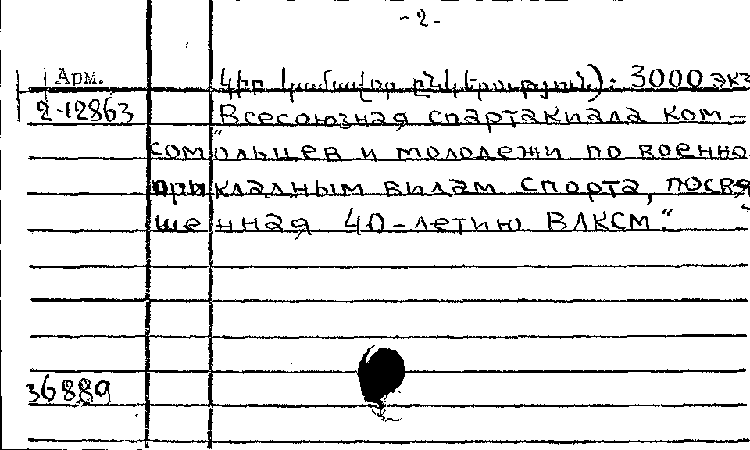 -2-
Арм.
2-12863
կիր կամավոր ընկերություն). 3000 экз
"Всесоюзная спартакиада ком-
сомольцев и молодежи по военно
прикладным видам спорта, посвя
щенная 40-летию ВЛКСМ."
36889